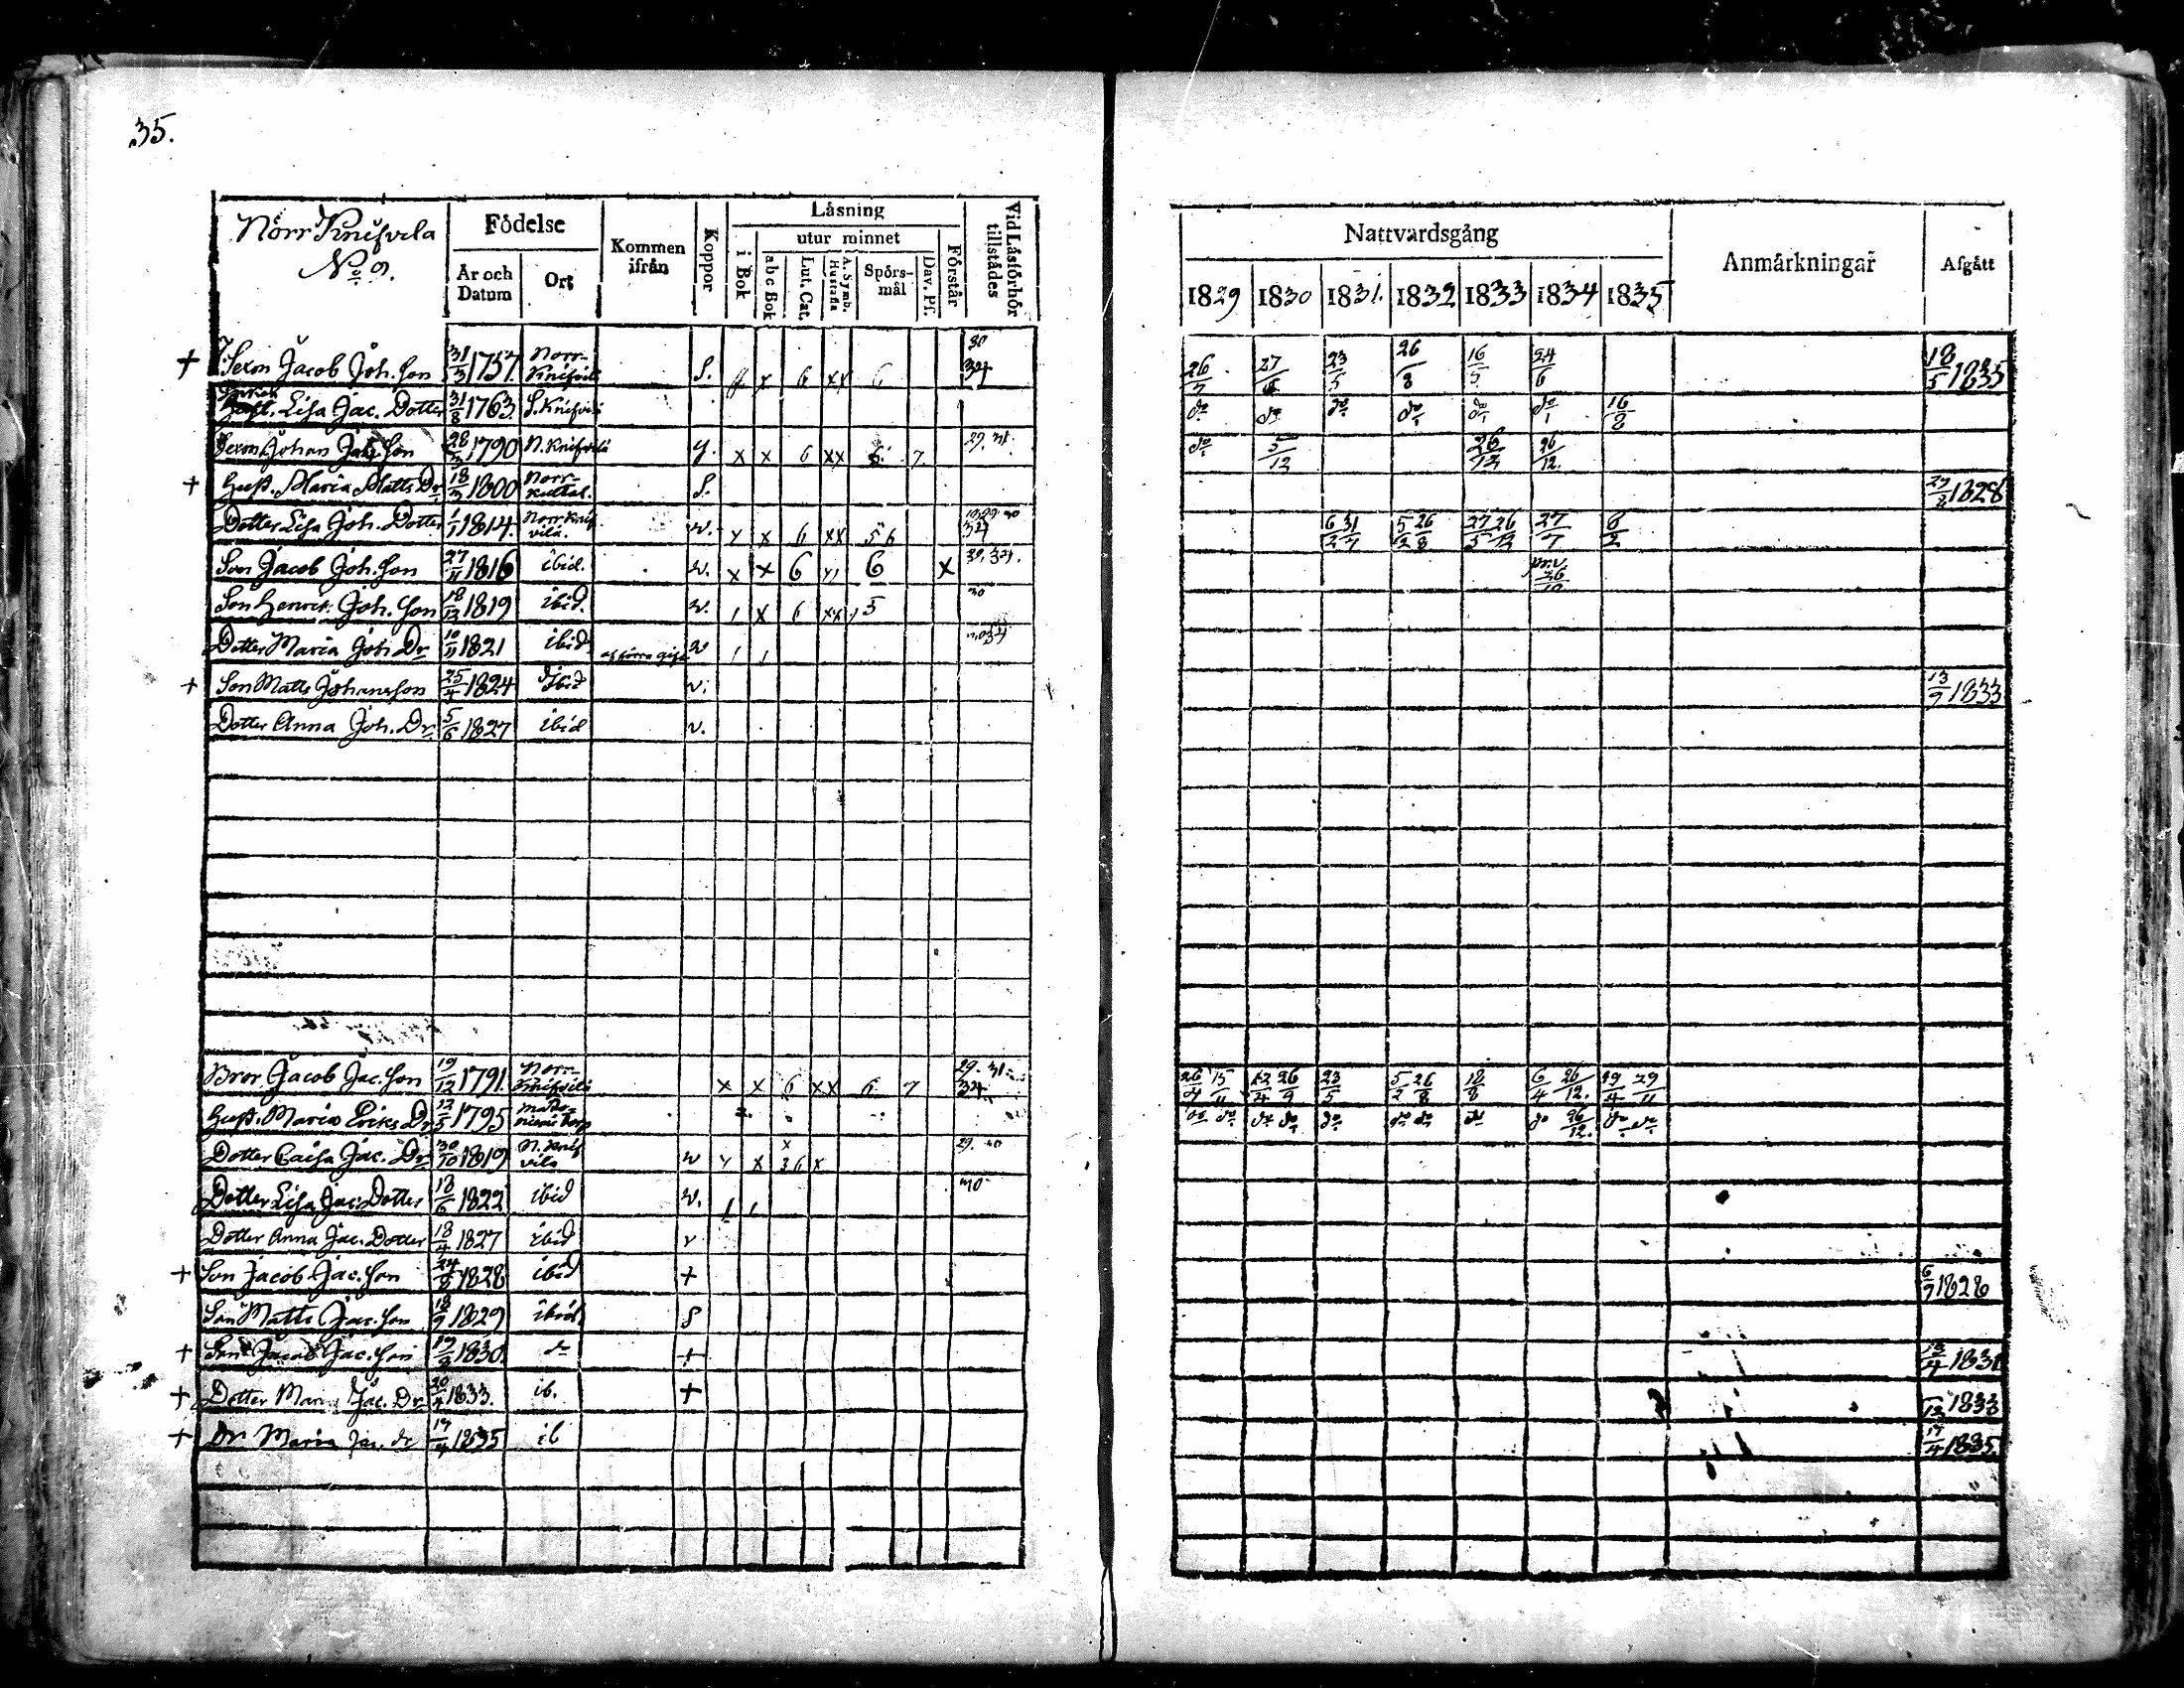 35.
Norr Knifvila
No 9.
Födelse
År och Datum
Ort
Kommen ifrån
Koppor
Läsning
i Bok
utur minnet
abc Bok
Lut. Cat.
A. Symb. Hustafla
Spörsmål
Dav. Ps.
Förstår
Vid Läsförhör tillstädes
Nattvardsgång
1829 1830 1831. 1832 1833 1834 1835
Anmärkningar
Afgått
+ Jacob Joh. Son 31/3 1757. Norr-Knifvila S. x 6 xx 6 30 34 26/7 27/6 23/5 26/8 16/5 24/6 18/5 1835
Lisa Jac. Dotter 31/8 1763 S. Knifvila do do do do do do 16/8
Johan Jac. Son 28/3 1790 N. Knifvila x x 6 xx 6 7 29. 31. do 5/12 26/12 26/12.
+ Hust. Maria Matts Dr 18/3 1800 Norr- S. 29/8 1828
Dotter Lisa Joh. Dotter 1/1 1814. Norr Knifvila. v. x x 6 xx 5 6 34 6/2 31/7 5/2 26/8 27/5 26/12 27/7 8/2
Son Jacob Joh. Son 27/11 1816 ibid. v. x x 6 6 x 30. 34. priv. 26/10
Son Henric Joh. Son 18/12 1819 ibid. v. 1 x 6 xx 5 30
Dotter Maria Joh. Dr 10/11 1821 ibid v 1 1 34
+ Son Matts Johansson 25/4 1824 Ibid v. 13/9 1833
Dotter Anna Joh. Dr. 5/6 1827 ibid v.
Bror Jacob Jac. Son 19/12 1791. Norr-Knifvila x x 6 xx 6 7 29. 31. 34. 26/7 15/11 12/4 26/9 23/5 5/2 26/8 18/8 6/4 26/12. 19/4 29/11
Hust. Maria Eriks Dr 12/5 1795 do do do do do do do do do 26/12. do do
Dotter Caisa Jac. Dr 30/10 1819 N. Knifvila v x 36 x 29. 30
Dotter Lisa Jac. Dotter 18/6 1822 ibid v. 1 1 30
Dotter Anna Jac. Dotter 18/4 1827 ibid v
+ Son Jacob Jac. Son 24/8 1828 ibid + 6/9 1828
Son Matts Jac. Son 18/9 1829 ibid S
+ Son Jacob Jac. Son 1830. do + 13/4 1831
+ Dotter Maria Jac. Dr 20/4 1833. ib. + 1833
+ Dr Maria Jac. dr 17/4 1835 ib 17/4 1835